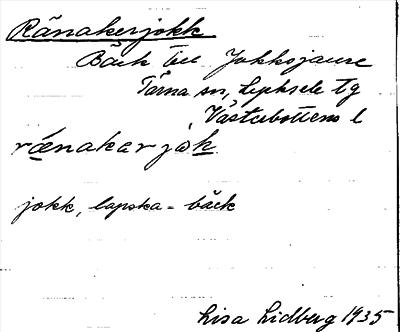 Ränakerjokk
Bäck till Jokksjaure
Tärna sn, Lycksele tg
Västerbottens l
rænakarjåk
jokk, lapska - bäck
Lisa Lidberg 1935